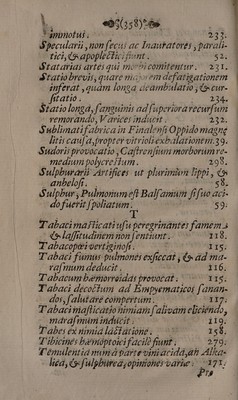 ❧(358)❧
immotus. 233.
Specularii, non secus ac Inauratores, parali-
tici, & apoplectici fiunt. 52.
Statarias artes qui morbi comitentur. 231.
Statio brevis, quare majorem defatigationem
inferat, quam longa deambulatio, & cur-
sitatio. 234.
Statio longa, sanguinis ad superiora recursum
remorando, Varices inducit. 232.
Sublimati fabrica in Finalensi Oppido magnæ
litis causa, propter vitrioli exhalationem. 39.
Sudoris provocatio, Castrensium morborum re-
medium polycrestum. 298.
Sulphurarii Artifices ut plurimum lippi, &
anhelosi. 58.
Sulphur, Pulmonum est Balsamum si suo aci-
do fuerit spoliatum. 59.
T
Tabaci masticati usu peregrinantes famem
& lassitudinem non sentiunt. 118.
Tabacopœi vertiginosi. 115.
Tabaci fumus pulmones exsiccat, & ad ma-
rasmum deducit. 116.
Tabacum hæmorroidas provocat. 115.
Tabaci decoctum ad Empyematicos sanan-
dos, salutare compertum. 117.
Tabaci masticatio nimiam salivam eliciendo,
marasmum inducit. 119.
Tabes ex nimia lactatione. 158.
Tibicines hæmoptoici facilè funt. 279.
Temulentia num à parte vini acida, an Alka-
lica, & sulphurea, opiniones variæ. 171.